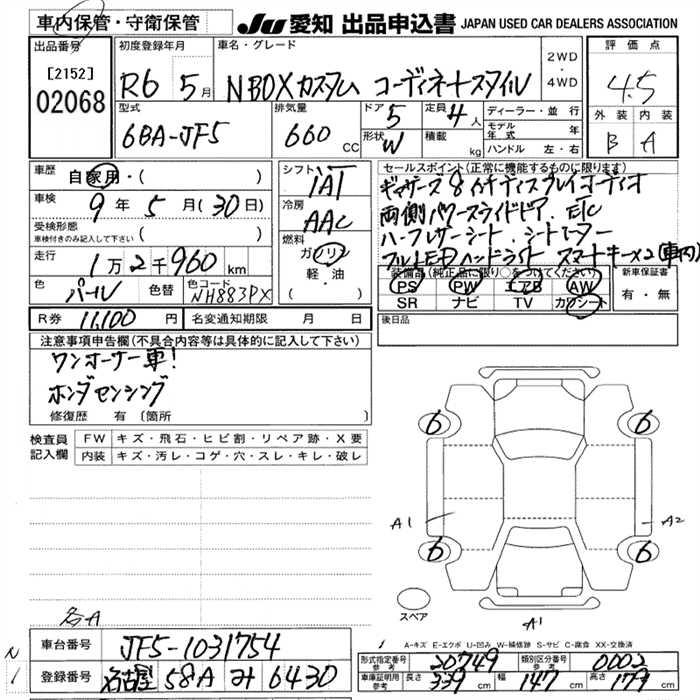 車内保管・守衛保管
JU 愛知 出品申込書 JAPAN USED CAR DEALERS ASSOCIATION
出品番号
[2152]
02068
初度登録年月
R6 5月
車名・グレード
NBOXカスタム コーディネートスタイル
2WD
・
4WD
評価点
4.5
外装 内装
B A
型式
6BA-JF5
排気量
660 CC
ドア 5
形状 W
定員 4人
積載 kg
ディーラー・並行
モデル年式 年
ハンドル 左・右
車歴 自家用・( )
車検 9年 5月 (30日)
受検形態
車検付きのみ記入して下さい ( )
走行 1万2千960 km
色 パール 色替 色コード NH883PX
シフト IAT
冷房 AAC
燃料
ガソリン
軽・油
・( )
セールスポイント(正常に機能するものに限ります)
ギャザーズ8インチディスプレイオーディオ
両側パワースライドドア、ETC
ハーフレザーシート、シートヒーター
フルLEDヘッドライト スマートキー×2(車内)
装備品(純正品に限り○をつけてください)
PS PW エアB AW
SR ナビ TV カワシート
新車保証書
有・無
R券 11,100円 名変通知期限 月 日
後日品
注意事項申告欄(不具合内容等は具体的に記入して下さい)
ワンオーナー車!
ホンダセンシング
修復歴 有 〔箇所 〕
検査員記入欄
FW キズ・飛石・ヒビ割・リペア跡・X要
内装 キズ・汚レ・コゲ・穴・スレ・キレ・破レ
6 6
A1 A2
6 6
スペア
A1
各A
A-キズ E-エクボ U-凹み W-補修跡 S-サビ C-腐食 XX-交換済
N
1
車台番号 JF5-1031754
登録番号 名古屋 58A み 6430
形式指定番号 参考 20749 類別区分番号 参考 0002
車庫証明用 参考 長さ 339 cm 幅 147 cm 高さ 179 cm